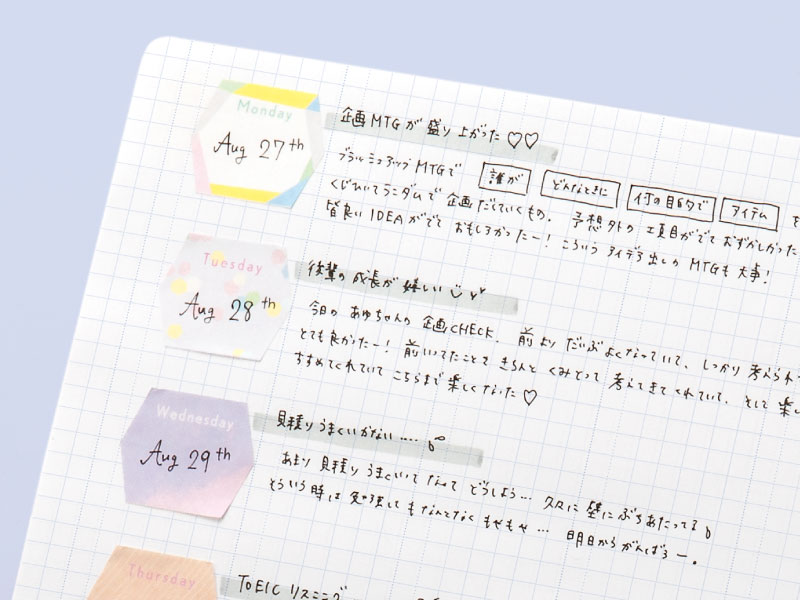 Monday
Aug 27th
企画MTGが盛り上がった♡♡
ブラッシュアップMTGで 誰が どんなときに 何の目的で アイテム を
くじびいてランダムで企画だしていくもの。 予想外の項目がでて むずかしかった
皆良いIDEAがでて おもしろかったー! こういうアイデア出しのMTGも大事!
Tuesday
Aug 28th
後輩の成長が嬉しい
今日の あゆちゃんの 企画CHECK. 前より だいぶよくなっていて、しっかり考えられ
とても良かったー! 前いってたことを きちんと くみとって 考えてきてくれていて、そして楽し
すすめてくれていて こちらまで楽しくなった♡
Wednesday
Aug 29th
見積りうまくいかない....
あまり 見積り うまくいってなくて どうしよう... 久々に 壁にぶちあたってる
そういう時は 勉強しても なんとなく もやもや... 明日から がんばろー。
Thursday
TOEIC リスニング